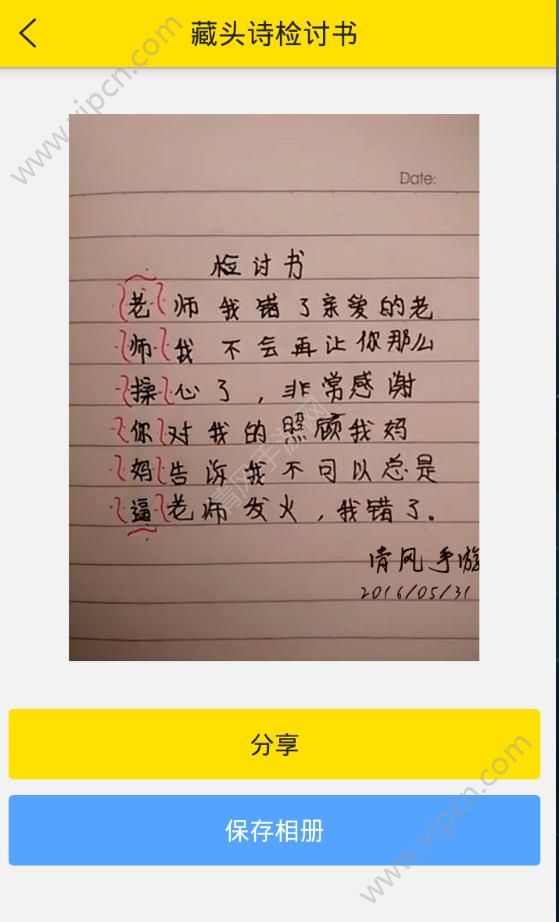 藏头诗检讨书
www.vipcn.com
Date:
检讨书
老师我错了亲爱的老
师我不会再让你那么
操心了，非常感谢
你对我的照顾我妈
妈告诉我不可以总是
逼老师发火，我错了。
清风手游网
清风手游
2016/05/31
分享
保存相册
www.vipcn.com